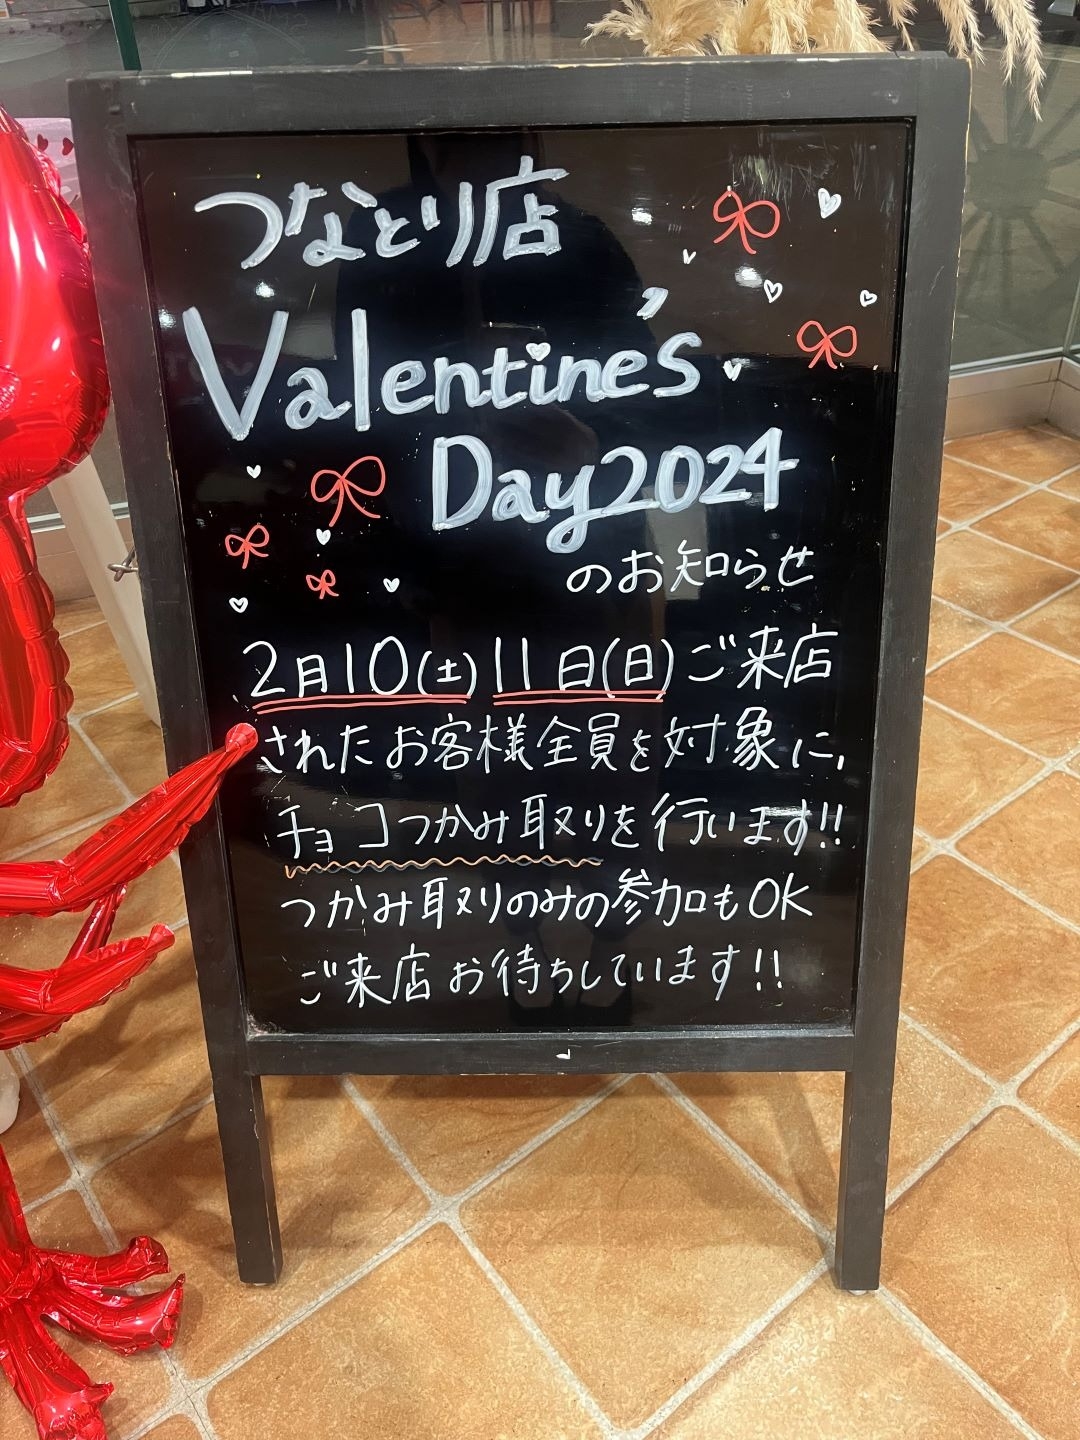 つなとり店
Valentine's
Day2024
のお知らせ
2月10(土)11日(日)ご来店
されたお客様全員を対象に,
チョコつかみ取りを行います!!
つかみ取りのみの参加もOK
ご来店お待ちしています!!